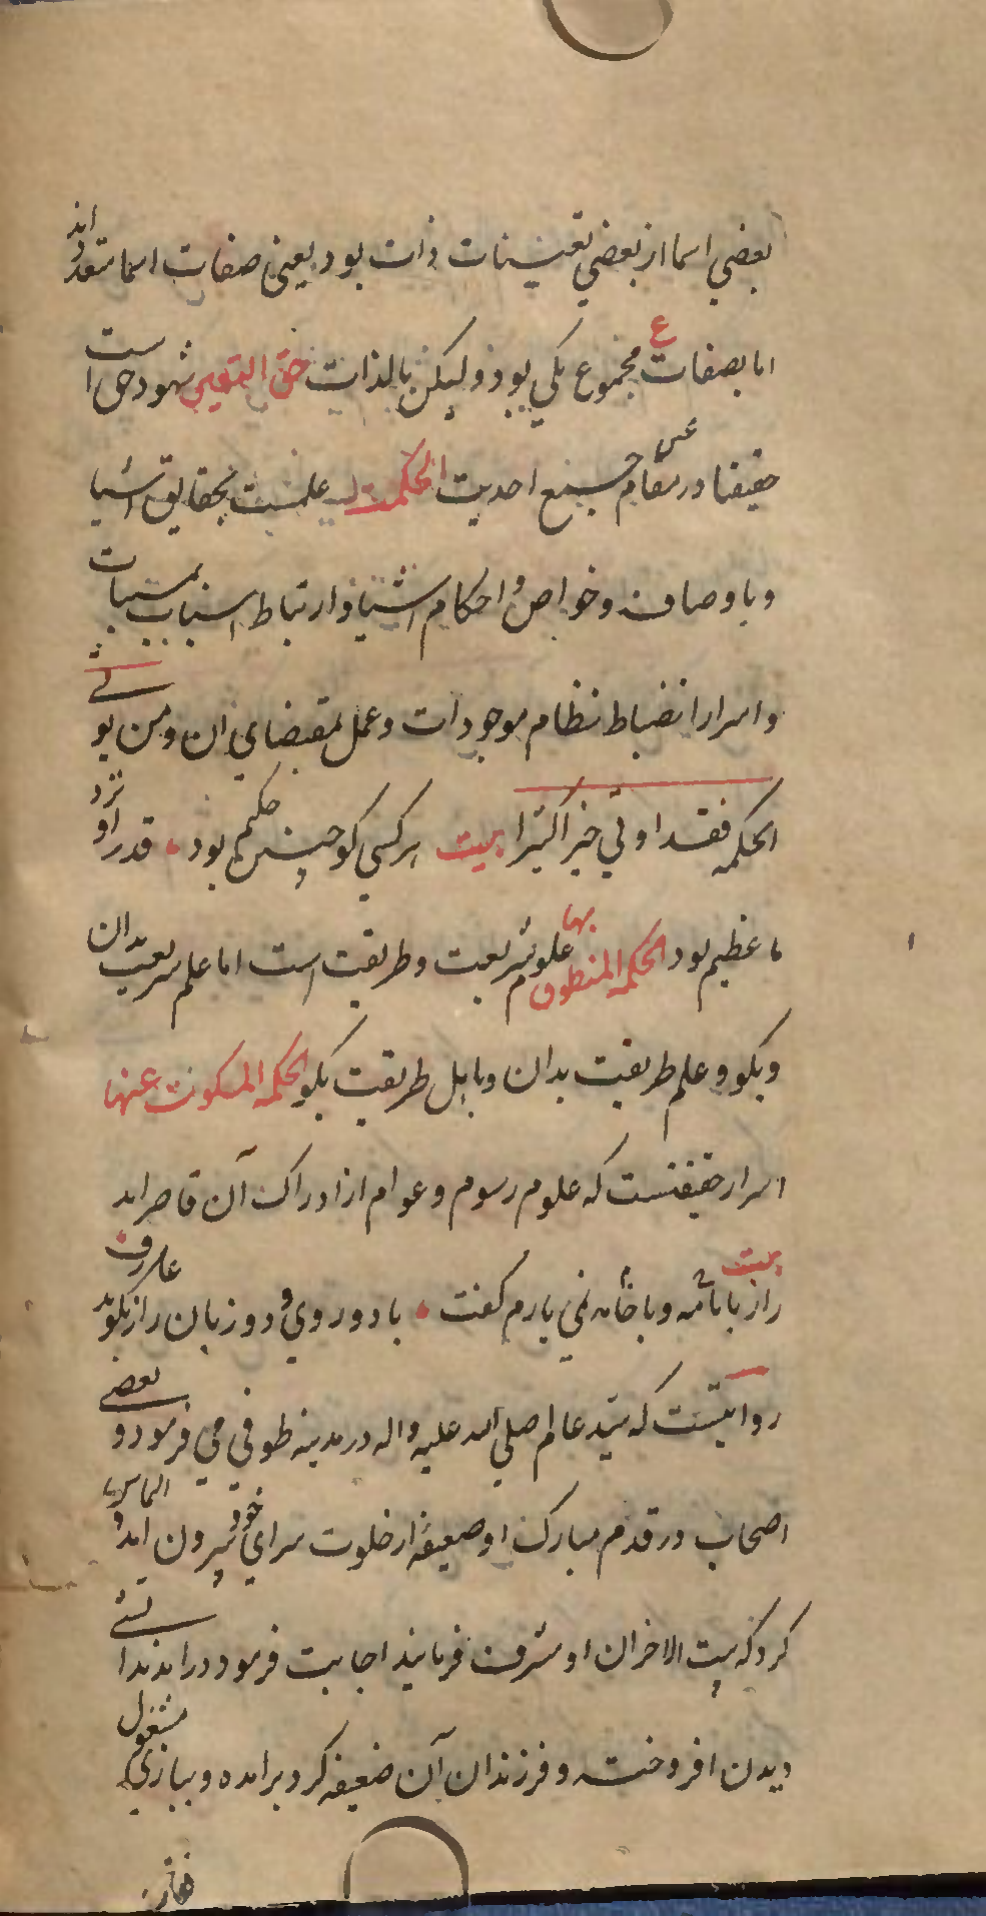 بعضي اسما از بعضي تعینات ذات بود یعنی صفات اسما متعدد اند
اما بصفات مجموع یکی بود و لیکن بالذات حق الیقین شهود حق است
حقیقتا در مقام عین جمع احدیت الحکمت علمست بحقایق اشیا
و باوصاف و خواص و احکام اشیا و ارتباط اسباب بمسببات
و اسرار انضباط نظام موجودات و عمل بمقتضای ان و من یوتی
الحکمه فقد اوتي خیرا کثیرا بیت هر کسی کو چنین حکیم بود قدر او نزد
ما عظیم بود الحکمه المنطوق بها علوم شریعت و طریقت است اما علم شریعت بدان
و بکو و علم طریقت بدان و باهل طریقت بکو الحکمه المسکوت عنها
اسرار حقیقتست که علوم رسوم و عوام از ادراک آن قاصر اند
بیت راز با نامه و با خامه نمي یارم کفت با دو روي و دو زبان راز نکوید عارف
روایتست که سید عالم صلی الله علیه و اله در مدینه طوفي مي فرمود و بعضی
اصحاب در قدم مبارک او ضعیفه از خلوت سرای خود بیرون امد و التماس
کرد که بیت الاحزان او مشرف فرمایند اجابت فرمود درامدند اتشی
دیدن افروخته و فرزندان آن ضعیفه کرد برامده و ببازی مشغول